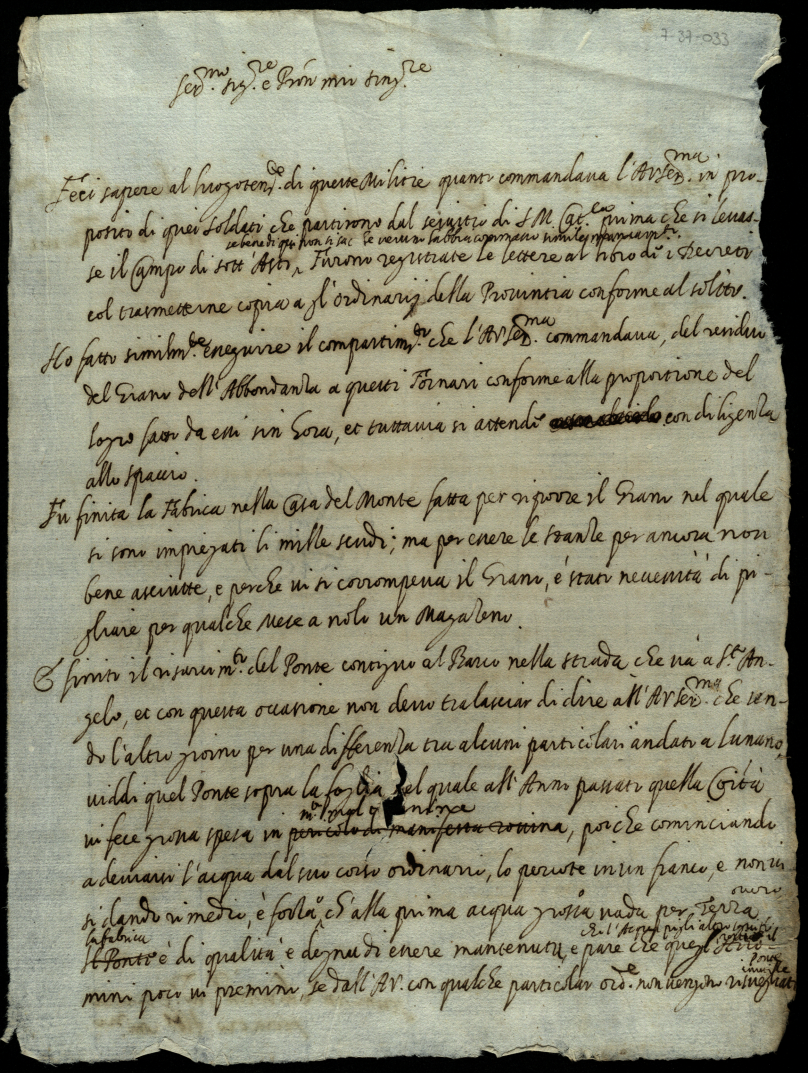 7-37-033
Ser.mo Sig.re e Pron mio sing.re
Feci sapere al luogoten.te di queste Militie quanto commandava l'A.V. Ser.ma in pro-
posito di quei soldati che partirono dal servitio di S. M. Cat.ca prima che si levas-
se bene di qui non si sa che veruno habbia commesso simile mancam.to.
se il Campo di sott'Asti, Furono registrate le lettere al libro di i Decreti
col trasmetterne copia a gl'Ordinarij della Provintia conforme al solito.
Ho fatto similm.te esseguire il compartim.to che l'A.V. Ser.ma commandava, del residuo
del Grano dell'Abbondanza a questi Fornari conforme alla proportione del
logro fatto da essi sin hora, et tuttavia si attende con diligenza
allo spaccio.
Fu finita la Fabrica nella Casa del Monte fatta per riporre il Grano nel quale
si sono impiegati li mille scudi; ma per essere le stanze per ancora non
bene asciutte, e perche vi si corrompeva il Grano, è stato necessità di pi-
gliare per qualche Mese a nolo un Magazeno.
È finito il risarcim.to del Ponte contiguo al Barco nella strada che va a S.t An-
gelo, et con questa occasione non devo tralasciar di dire all'A.V. Ser.ma che sen-
do l'altro giorno per una differenza tra alcuni particolari andato a Lunano,
viddi quel Ponte sopra la foglia nel quale all'Anno passato quella Co͠ità
vi fece grossa spesa in pericolo di manifesta rovina, poiche cominciando
a deviarsi l'acqua dal suo corso ordinario, lo percote in un fianco, e non vi
si dando rimedio, è forza, ch'alla prima acqua grossa vada per Terra
overo
che l'Acqua pigli altro
la fabrica
Il Ponte è di qualità e degna di essere mantenuta, e pare che quegl'Huo-
Ponte
inutile
mini poco vi premino, se dall'A.V. con qualche particolar ord.e non vengono risvegliati